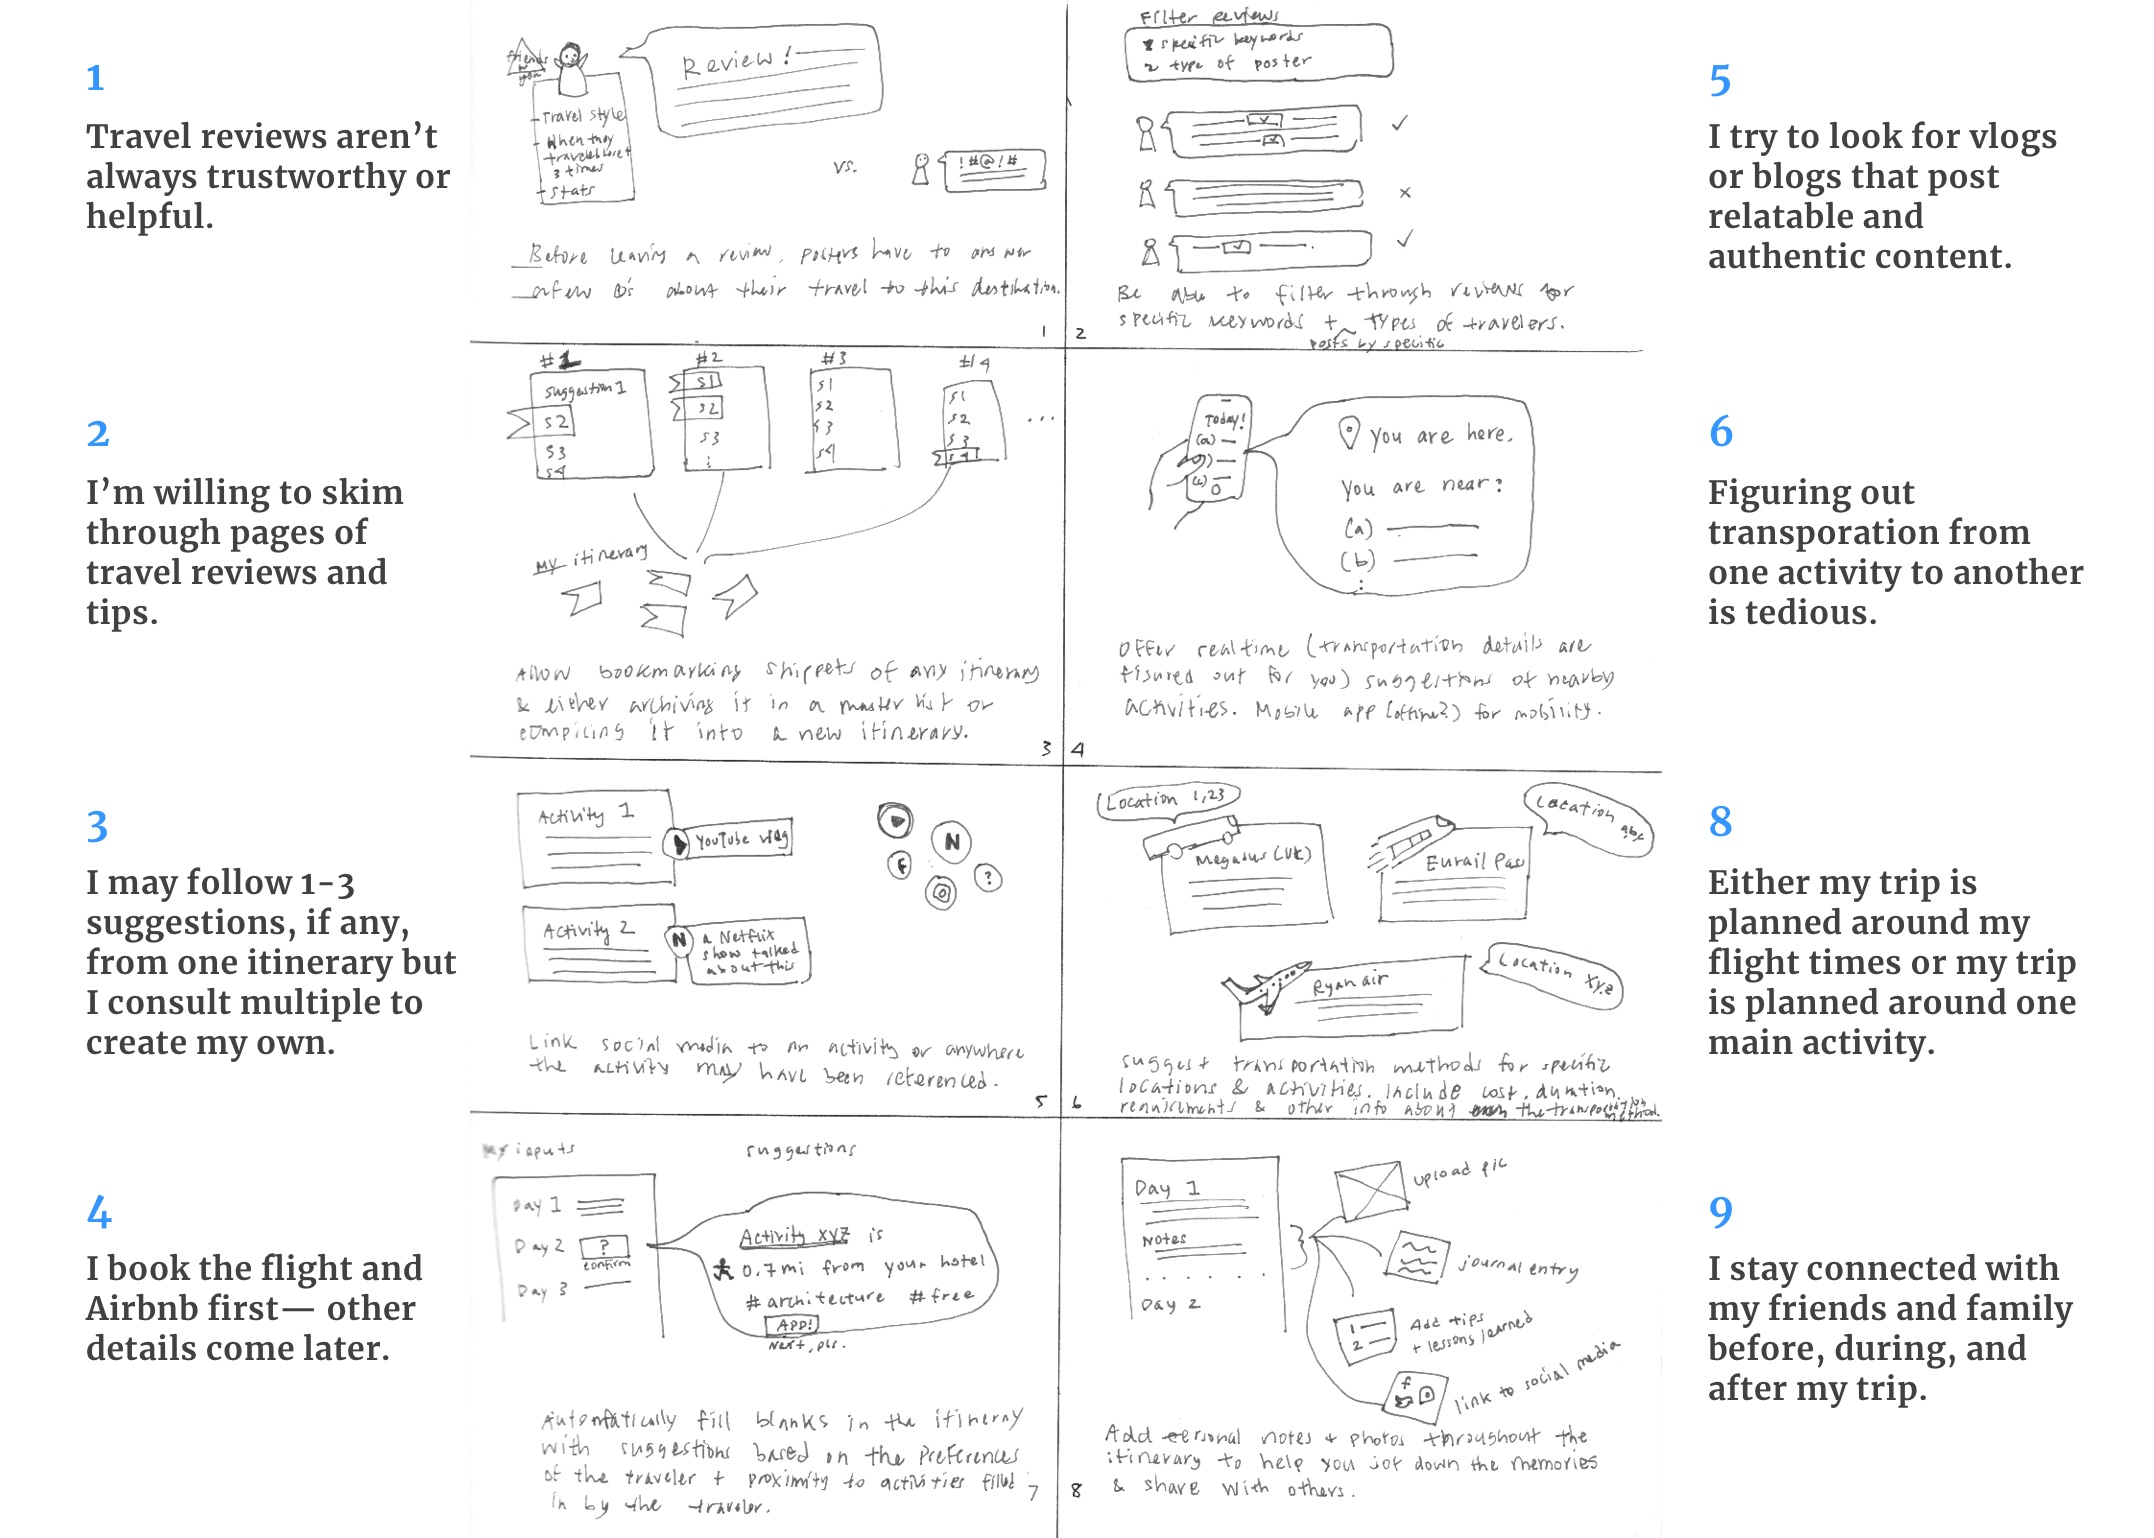 1
Travel reviews aren’t
always trustworthy or
helpful.
2
I’m willing to skim
through pages of
travel reviews and
tips.
3
I may follow 1-3
suggestions, if any,
from one itinerary but
I consult multiple to
create my own.
4
I book the flight and
Airbnb first— other
details come later.
friends
w
you
- Travel style
- When they
travelled here +
3 times
- Stats
Review!
vs.
!#@!#
Before leaving a review, posters have to answer
a few Q's about their travel to this destination.
1
Filter Reviews
1 specific keywords
2 type of poster
Be able to filter through reviews for
specific keywords + types of travelers.
posts by specific
2
#1
Suggestion 1
S2
S3
S4
#2
S1
S2
S3
#3
S1
S2
S3
S4
#4
S1
S2
S3
S4
...
My itinerary
Allow bookmarking snippets of any itinerary
& either archiving it in a master list or
compiling it into a new itinerary.
3
Today!
(a)
(c)
You are here.
You are near:
(a)
(b)
Offer realtime (transportation details are
figured out for you) suggestions of nearby
activities. Mobile app (offline?) for mobility.
4
Activity 1
YouTube vlog
Activity 2
N
a Netflix
show talked
about this
N
f
?
Link social media to an activity or anywhere
the activity may have been referenced.
5
Location 1,23
Megabus (UK)
Location abc
Eurail Pass
Ryanair
Location xyz
suggest transportation methods for specific
locations & activities. Include cost, duration,
requirements & other info about the transportation
method.
6
My inputs
Day 1
Day 2 ?
confirm
Day 3
suggestions
Activity XYZ is
0.7mi from your hotel
#architecture #free
ADD!
Next, pls.
Automatically fill blanks in the itinerary
with suggestions based on the preferences
of the traveler + proximity to activities filled
in by the traveler.
7
Day 1
Notes
Day 2
upload pic
journal entry
1
2
Add tips
+ lessons learned
f
link to social media
Add personal notes + photos throughout the
itinerary to help you jot down the memories
& share with others.
8
5
I try to look for vlogs
or blogs that post
relatable and
authentic content.
6
Figuring out
transporation from
one activity to another
is tedious.
8
Either my trip is
planned around my
flight times or my trip
is planned around one
main activity.
9
I stay connected with
my friends and family
before, during, and
after my trip.